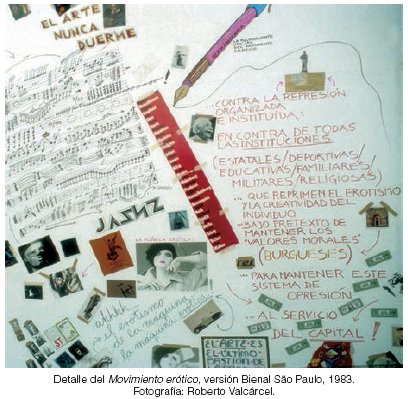 EL ARTE
NUNCA
DUERME
CONTRA LA REPRESIÓN
ORGANIZADA
E INSTITUÍDA:
EN CONTRA DE TODAS
LAS INSTITUCIONES
(ESTATALES/DEPORTIVAS/
EDUCATIVAS/FAMILIARES/
MILITARES/RELIGIOSAS)
... QUE REPRIMEN EL EROTISMO
Y LA CREATIVIDAD DEL
INDIVIDUO
- BAJO PRETEXTO DE
MANTENER LOS
"VALORES MORALES"
(BURGUESES)
... PARA MANTENER ESTE
SISTEMA DE
OPRESIÓN
... AL SERVICIO
DEL CAPITAL!
JASHZ
LA MÚSICA ERÓTICA:
ahhhh:
el erotismo
de la máquina
la máquina erótica
EL ARTE ES
EL ÚLTIMO
BASTIÓN DE
Detalle del Movimiento erótico, versión Bienal São Paulo, 1983.
Fotografía: Roberto Valcárcel.